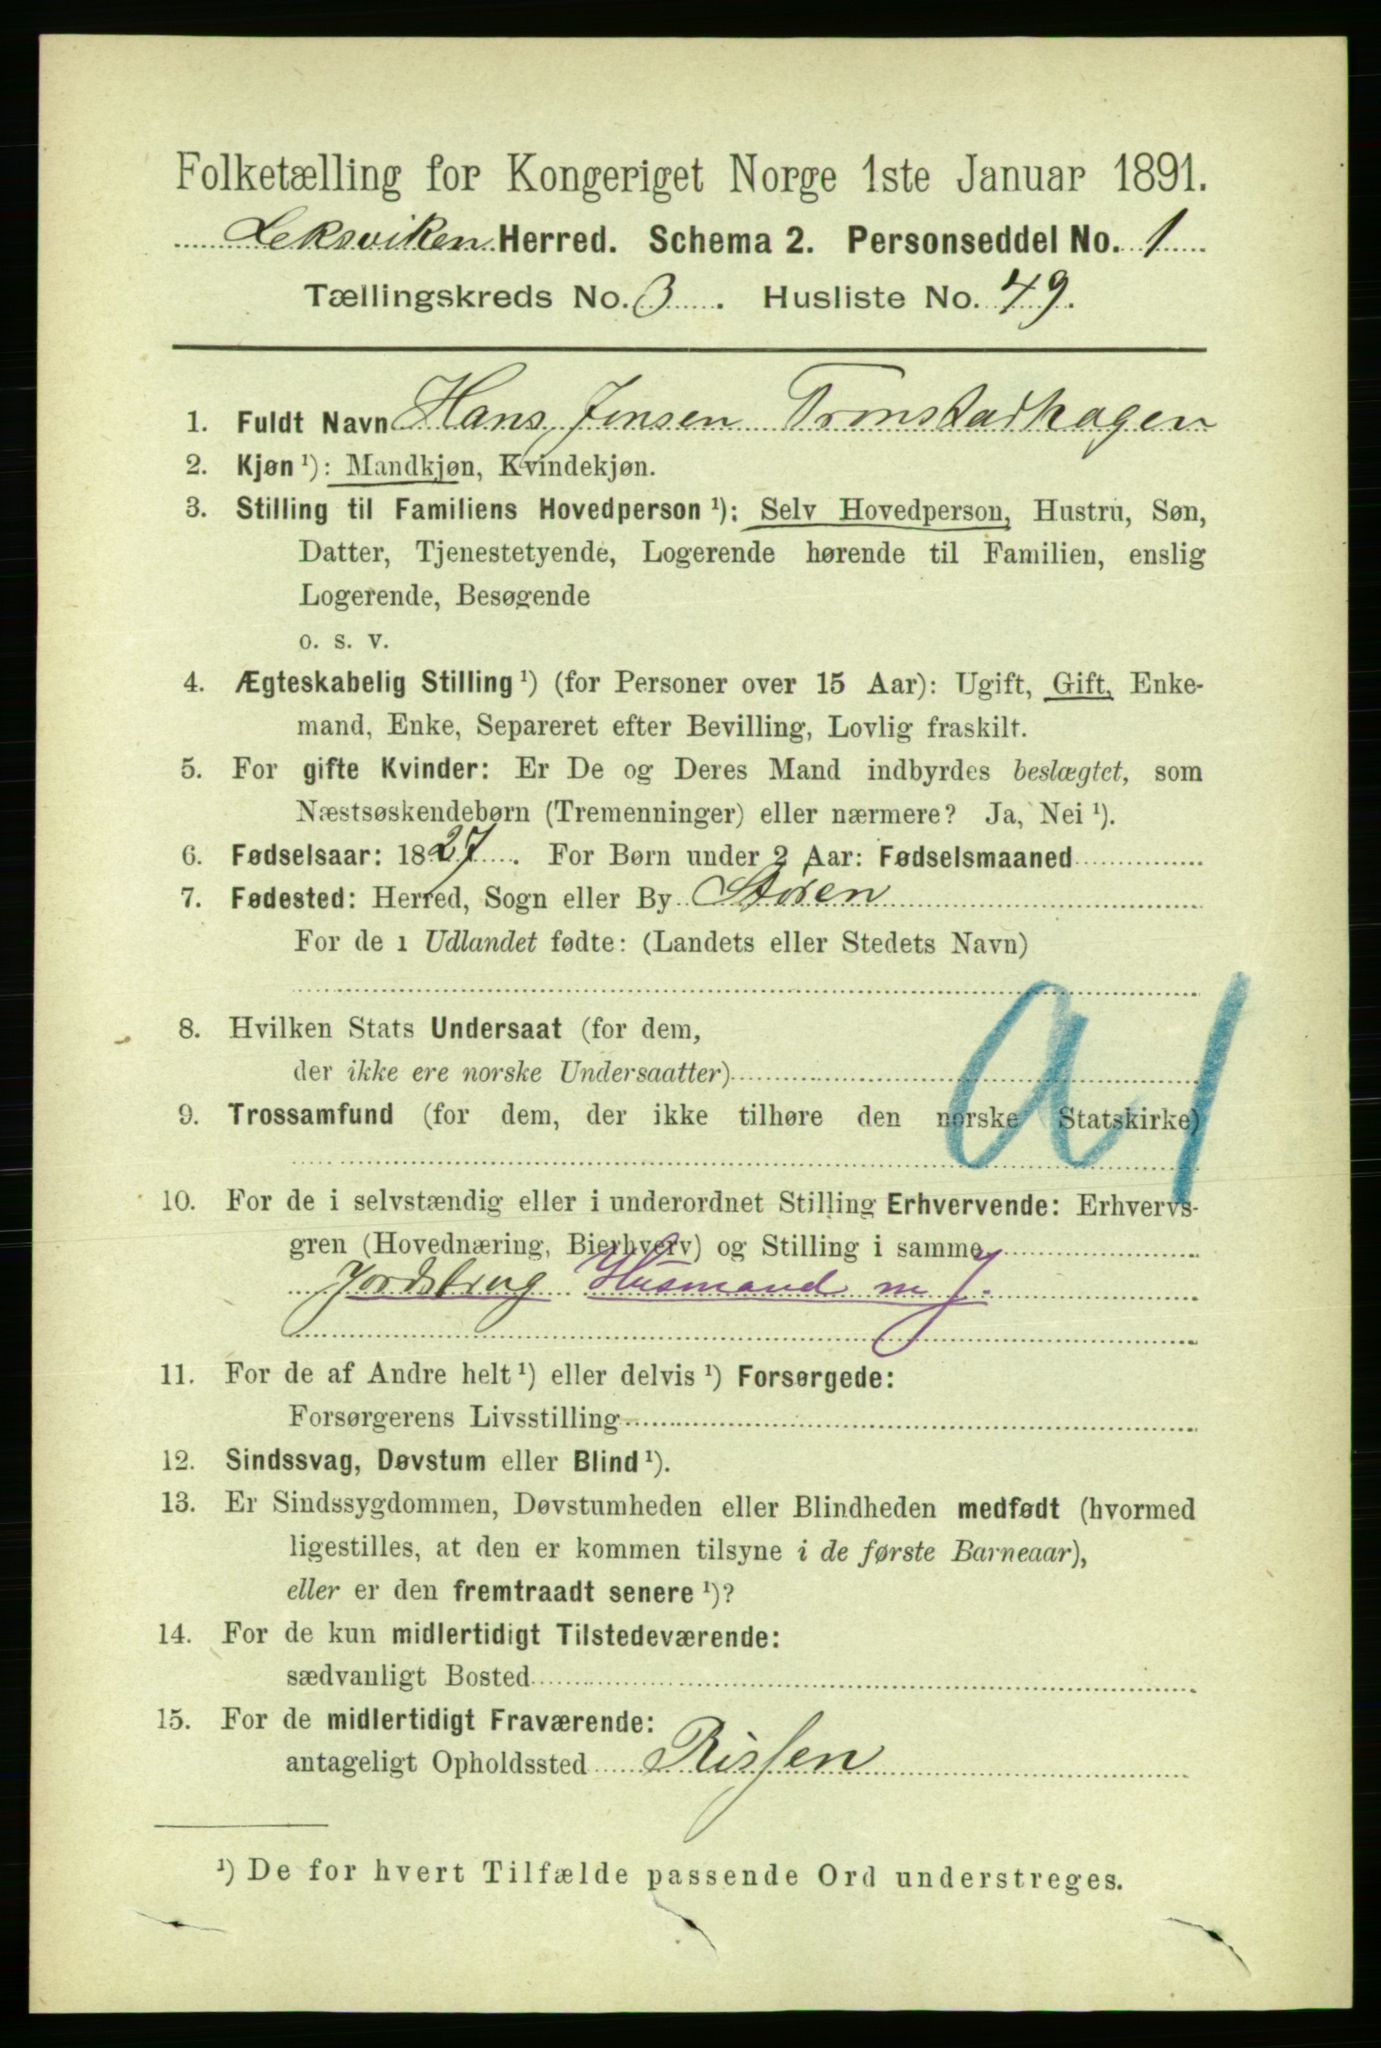 Folketælling for Kongeriget Norge 1ste Januar 1891.
Leksviken Herred. Schema 2. Personseddel No. 1
Tællingskreds No. 3. Husliste No. 49.
1. Fuldt Navn Hans Jensen Tronstadhagen
2. Kjøn ¹): Mandkjøn, Kvindekjøn.
3. Stilling til Familiens Hovedperson ¹): Selv Hovedperson, Hustru, Søn,
Datter, Tjenestetyende, Logerende hørende til Familien, enslig
Logerende, Besøgende
o. s. v.
4. Ægteskabelig Stilling ¹) (for Personer over 15 Aar): Ugift, Gift, Enke-
mand, Enke, Separeret efter Bevilling, Lovlig fraskilt.
5. For gifte Kvinder: Er De og Deres Mand indbyrdes beslægtet, som
Næstsøskendebørn (Tremenninger) eller nærmere? Ja, Nei ¹).
6. Fødselsaar: 1827. For Børn under 2 Aar: Fødselsmaaned
7. Fødested: Herred, Sogn eller By Støren
For de i Udlandet fødte: (Landets eller Stedets Navn)
8. Hvilken Stats Undersaat (for dem,
der ikke ere norske Undersaatter)
9. Trossamfund (for dem, der ikke tilhøre den norske Statskirke)
a1
10. For de i selvstændig eller i underordnet Stilling Erhvervende: Erhvervs-
gren (Hovednæring, Bierhverv) og Stilling i samme
Jordsbrug Husmand m J.
11. For de af Andre helt ¹) eller delvis ¹) Forsørgede:
Forsørgerens Livsstilling
12. Sindssvag, Døvstum eller Blind ¹).
13. Er Sindssygdommen, Døvstumheden eller Blindheden medfødt (hvormed
ligestilles, at den er kommen tilsyne i de første Barneaar),
eller er den fremtraadt senere ¹)?
14. For de kun midlertidigt Tilstedeværende:
sædvanligt Bosted
15. For de midlertidigt Fraværende:
antageligt Opholdssted Rissen
¹) De for hvert Tilfælde passende Ord understreges.